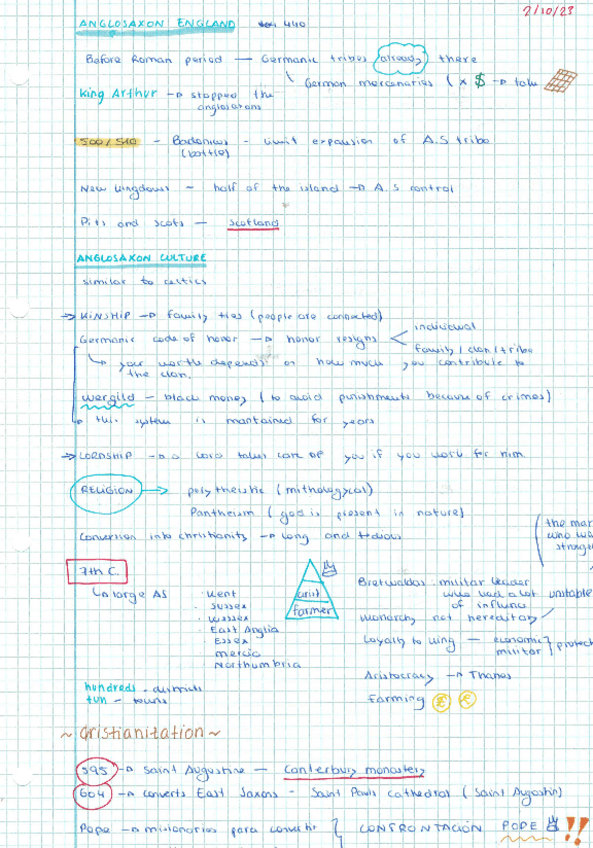 2/10/23
ANGLOSAXON ENGLAND 440
Before Roman period — Germanic tribes already there
German mercenaries ( x $ → take
King Arthur → stopped the anglosaxons
500/510 - Badonius - limit expansion of A.S tribe
(battle)
New Kingdoms - half of the island → A.S control
Pits and scots — Scotland
ANGLOSAXON CULTURE
similar to celtics
→ KINSHIP → family ties (people are connected)
Germanic code of honor → honor resigns < individual
family / clan / tribe
↳ your worth depends on how much you contribute to
the clan.
wergild - black money (to avoid punishments because of crimes)
→ this system is mantained for years
→ LORDSHIP → a lord takes care of you if you work for him.
RELIGION → polytheistic (mithologycal)
Pantheism (god is present in nature)
Conversion into christianity → long and tedious
(the man
who wa
strongest
7th C.
↳ large AS · Kent
· Sussex
· Wessex
· East Anglia
· Essex
· Mercia
Northumbria
farmer
Bretwaldas: militar leader
who had a lot
of influence
unstable
monarchy not hereditary
Loyalty to king — economic
militar } protect
Aristocracy → Thanes
Farming £ €
hundreds - districts
tun - towns
~ Cristianitation ~
595 → Saint Augustine — Canterbury monastery
604 → converts East Saxons - Saint Pauls cathedral (Saint Augustin)
Pope → misionarios para convertir } CONFRONTACIÓN POPE !!